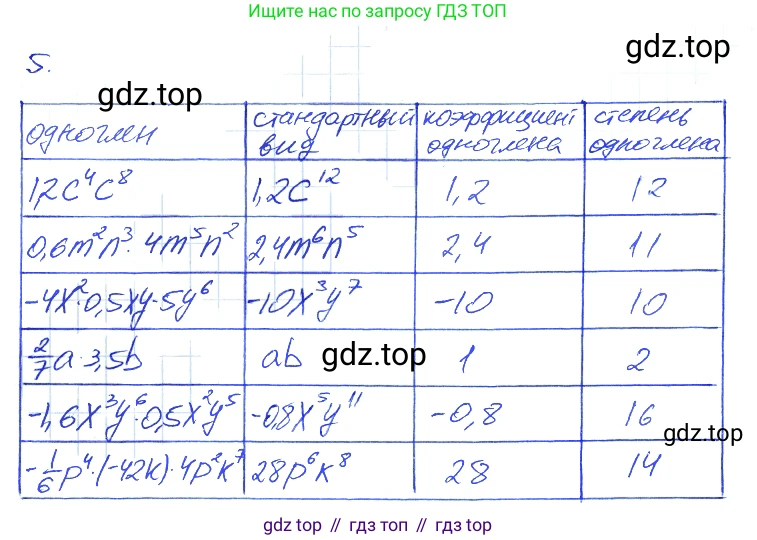 Ищите нас по запросу ГДЗ ТОП
gdz.top
5.
gdz.top
одночлен | стандартный вид | коэффициент одночлена | степень одночлена
1,2c⁴c⁸ | 1,2c¹² | 1,2 | 12
0,6m²n³·4m⁵n² | 2,4m⁶n⁵ | 2,4 | 11
-4x²·0,5xy·5y⁶ | -10x³y⁷ | -10 | 10
2/7a·3,5b | ab | 1 | 2
gdz.top
-1,6x³y⁶·0,5x²y⁵ | -0,8x⁵y¹¹ | -0,8 | 16
gdz.top
-1/6p⁴·(-42k)·4p²k⁷ | 28p⁶k⁸ | 28 | 14
gdz.top // гдз топ // gdz.top